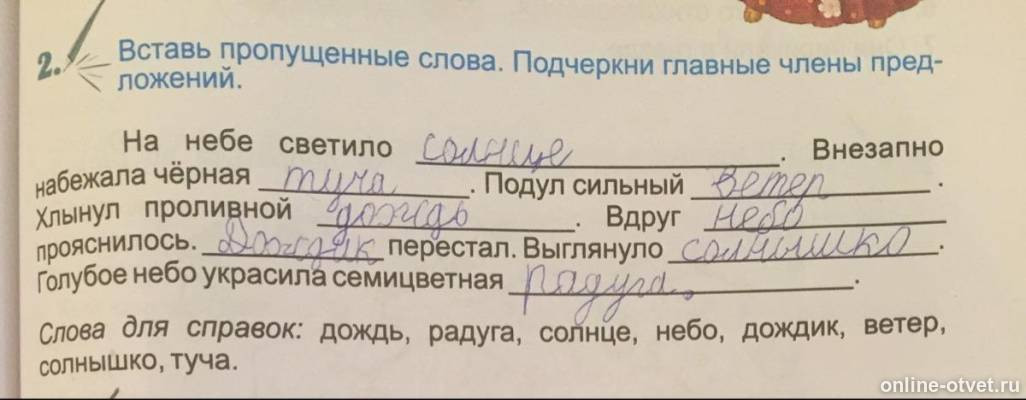 2. Вставь пропущенные слова. Подчеркни главные члены пред-
ложений.
На небе светило солнце. Внезапно
набежала чёрная туча. Подул сильный ветер.
Хлынул проливной дождь. Вдруг небо
прояснилось. Дождик перестал. Выглянуло солнышко.
Голубое небо украсила семицветная радуга.
Слова для справок: дождь, радуга, солнце, небо, дождик, ветер,
солнышко, туча.
online-otvet.ru